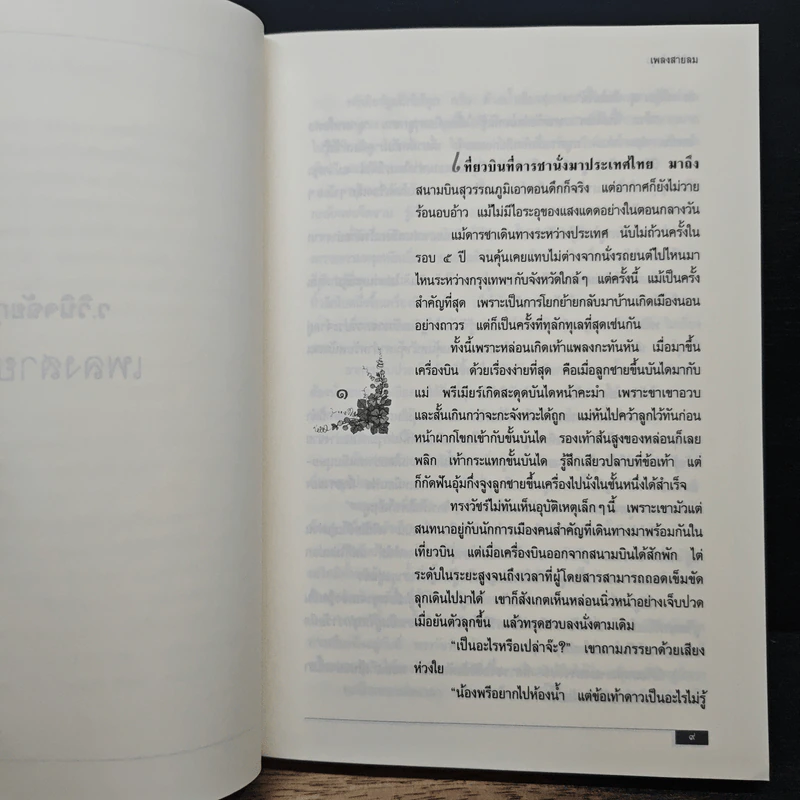 เพลงสายลม
เที่ยวบินที่ดารชานั่งมาประเทศไทย มาถึง
สนามบินสุวรรณภูมิเอาตอนดึกก็จริง แต่อากาศก็ยังไม่วาย
ร้อนอบอ้าว แม้ไม่มีไอระอุของแสงแดดอย่างในตอนกลางวัน
แม้ดารชาเดินทางระหว่างประเทศ นับไม่ถ้วนครั้งใน
รอบ ๕ ปี จนคุ้นเคยแทบไม่ต่างจากนั่งรถยนต์ไปไหนมา
ไหนระหว่างกรุงเทพฯกับจังหวัดใกล้ๆ แต่ครั้งนี้ แม้เป็นครั้ง
สำคัญที่สุด เพราะเป็นการโยกย้ายกลับมาบ้านเกิดเมืองนอน
อย่างถาวร แต่ก็เป็นครั้งที่ทุลักทุเลที่สุดเช่นกัน
ทั้งนี้เพราะหล่อนเกิดเท้าแพลงกะทันหัน เมื่อมาขึ้น
เครื่องบิน ด้วยเรื่องง่ายที่สุด คือเมื่อลูกชายขึ้นบันไดมากับ
แม่ พรีเมียร์เกิดสะดุดบันไดหน้าคะมำ เพราะขาเขาอวบ
และสั้นเกินกว่าจะกะจังหวะได้ถูก แม่หันไปคว้าลูกไว้ทันก่อน
หน้าผากโขกเข้ากับขั้นบันได รองเท้าส้นสูงของหล่อนก็เลย
พลิก เท้ากระแทกขั้นบันได รู้สึกเสียวปลาบที่ข้อเท้า แต่
ก็กัดฟันอุ้มกึ่งจูงลูกชายขึ้นเครื่องไปนั่งในชั้นหนึ่งได้สำเร็จ
ทรงวัชร์ไม่ทันเห็นอุบัติเหตุเล็กๆนี้ เพราะเขามัวแต่
สนทนาอยู่กับนักการเมืองคนสำคัญที่เดินทางมาพร้อมกันใน
เที่ยวบิน แต่เมื่อเครื่องบินออกจากสนามบินได้สักพัก ไต่
ระดับในระยะสูงจนถึงเวลาที่ผู้โดยสารสามารถถอดเข็มขัด
ลุกเดินไปมาได้ เขาก็สังเกตเห็นหล่อนนิ่วหน้าอย่างเจ็บปวด
เมื่อยันตัวลุกขึ้น แล้วทรุดฮวบลงนั่งตามเดิม
"เป็นอะไรหรือเปล่าจ๊ะ?" เขาถามภรรยาด้วยเสียง
ห่วงใย
"น้องพรีอยากไปห้องน้ำ แต่ข้อเท้าดาวเป็นอะไรไม่รู้
๑
๙